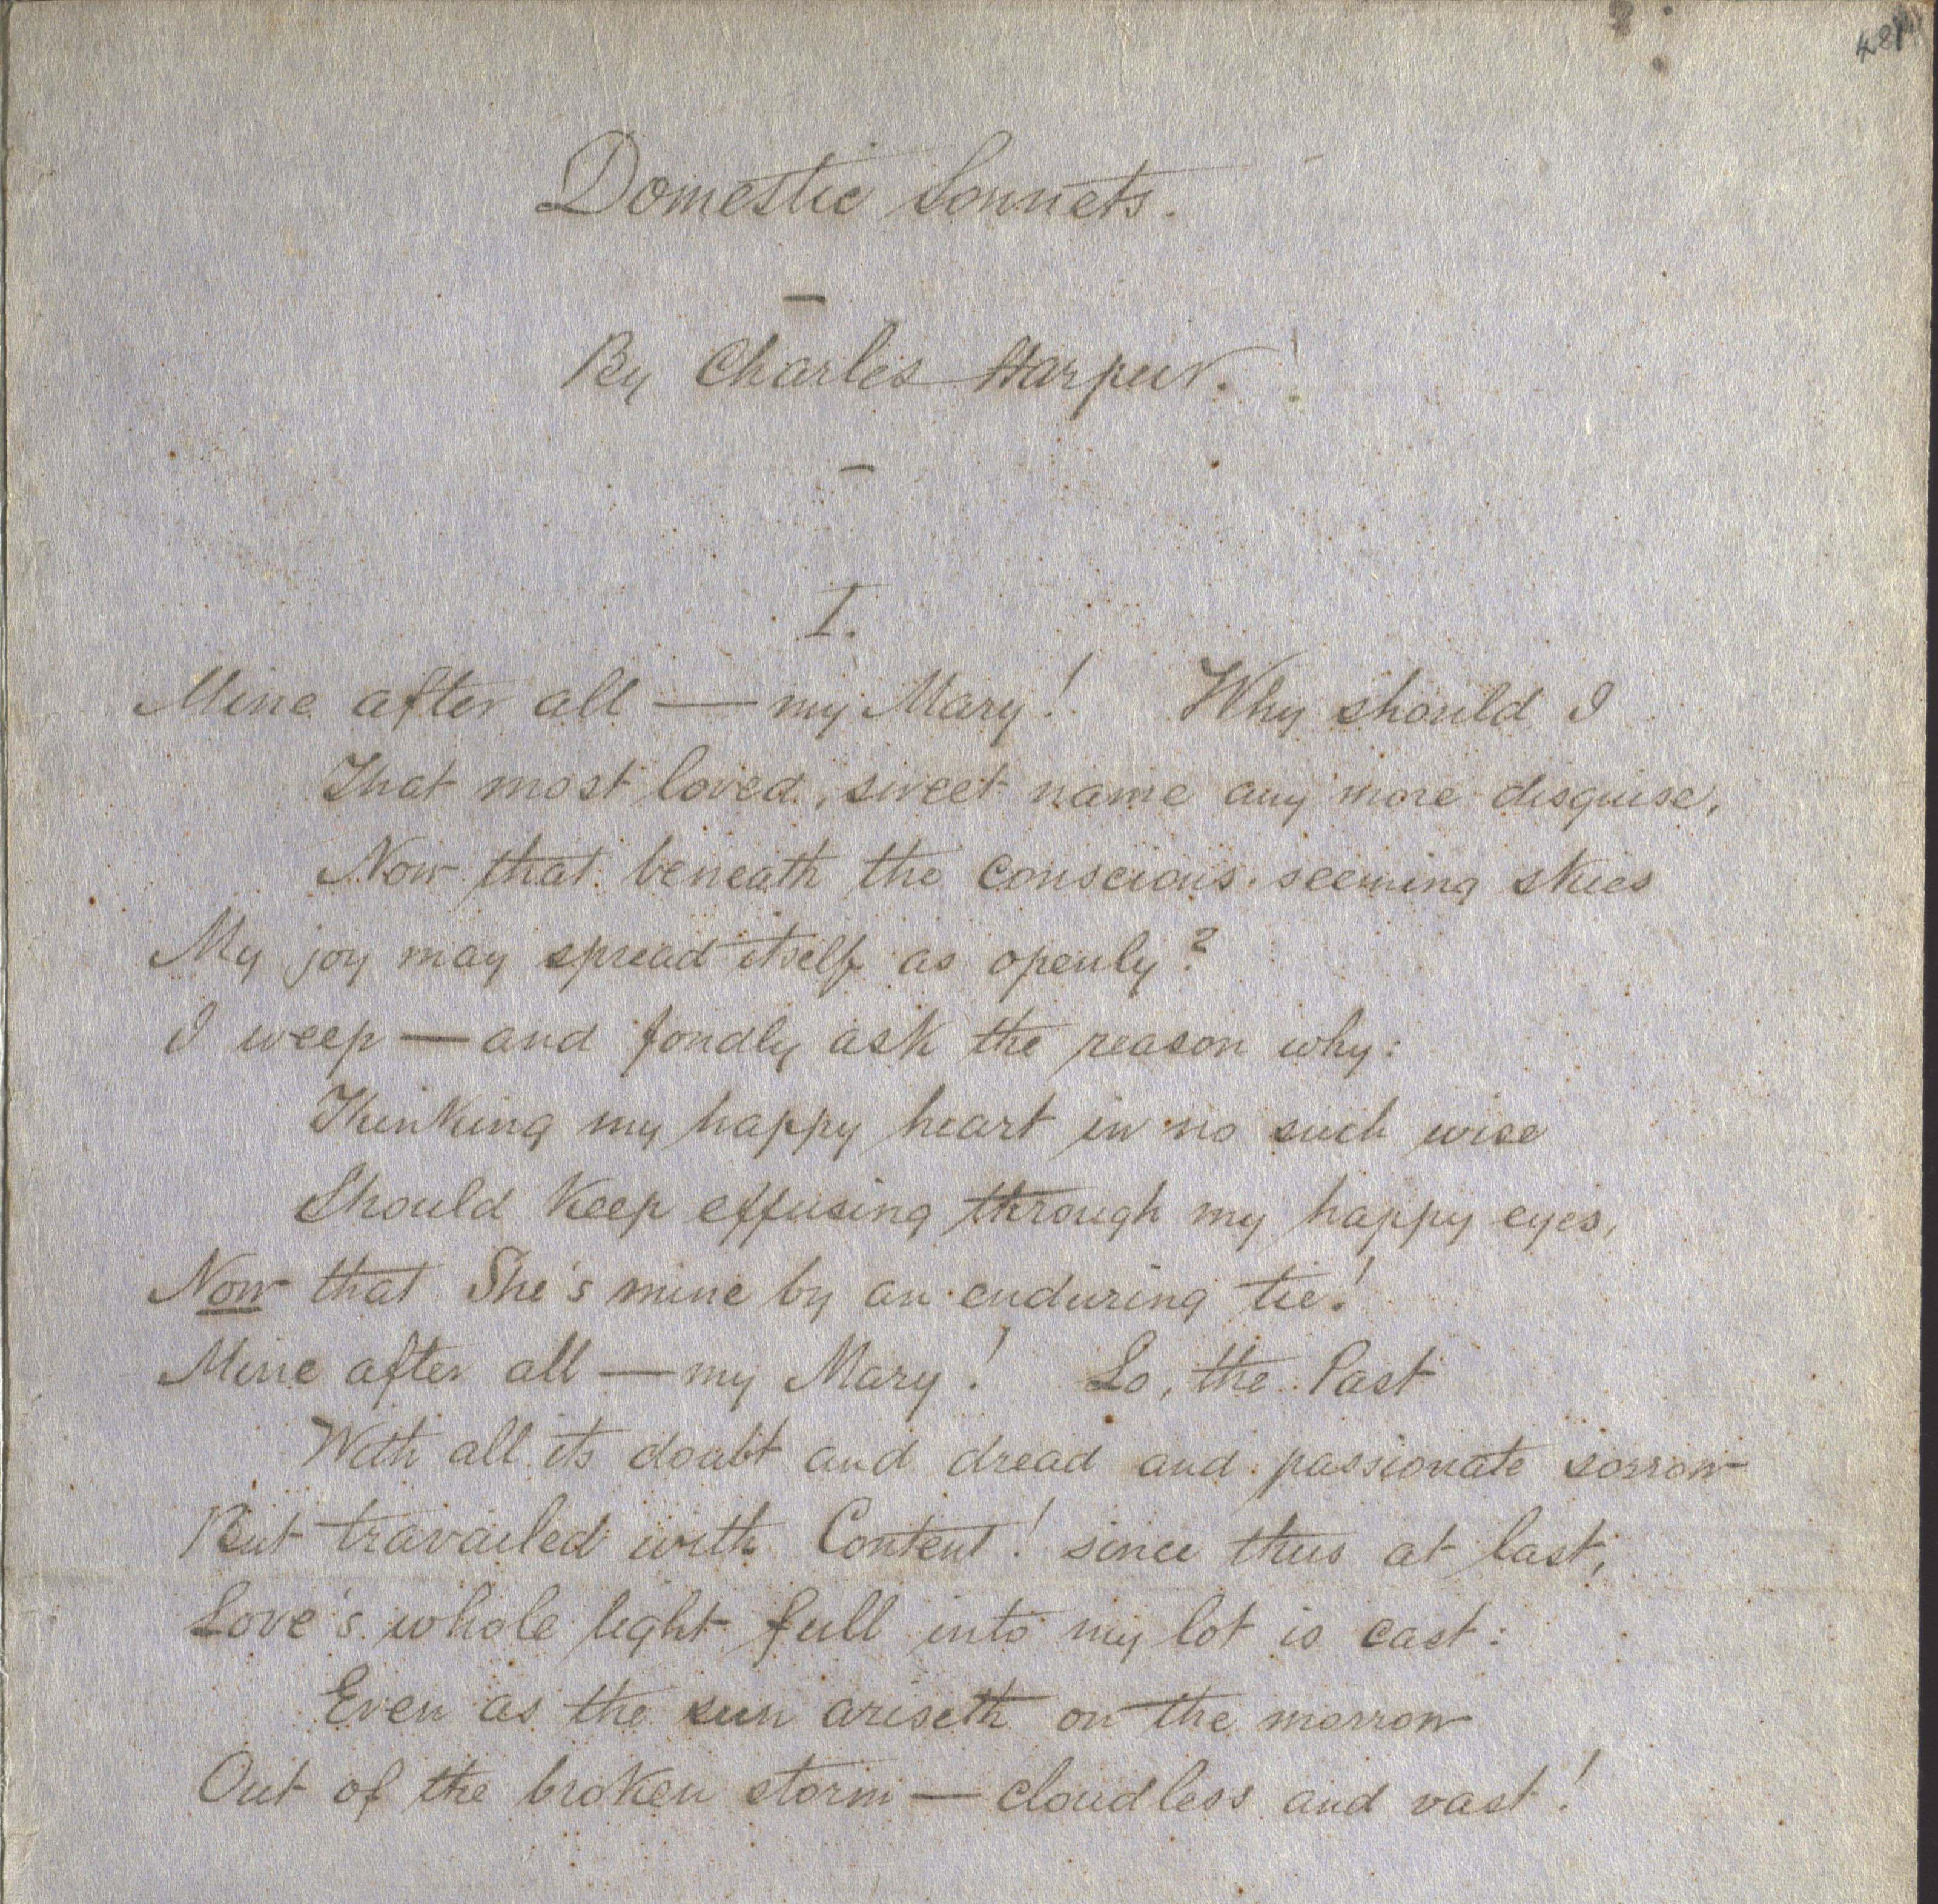 Domestic Sonnets.
—
By Charles Harpur.
—
I.
Mine after all — my Mary! Why should I
That most loved, sweet name any more disguise,
Now that beneath the conscious-seeming skies
My joy may spread itself as openly?
I weep — and fondly ask the reason why:
Thinking my happy heart in no such wise
Should keep effusing through my happy eyes,
Now that She's mine by an enduring tie!
Mine after all — my Mary! Lo, the Past
With all its doubt and dread and passionate sorrow
But travailed with Content! since thus at last,
Love's whole light full into my lot is cast:
Even as the sun ariseth on the morrow
Out of the broken storm — cloudless and vast!